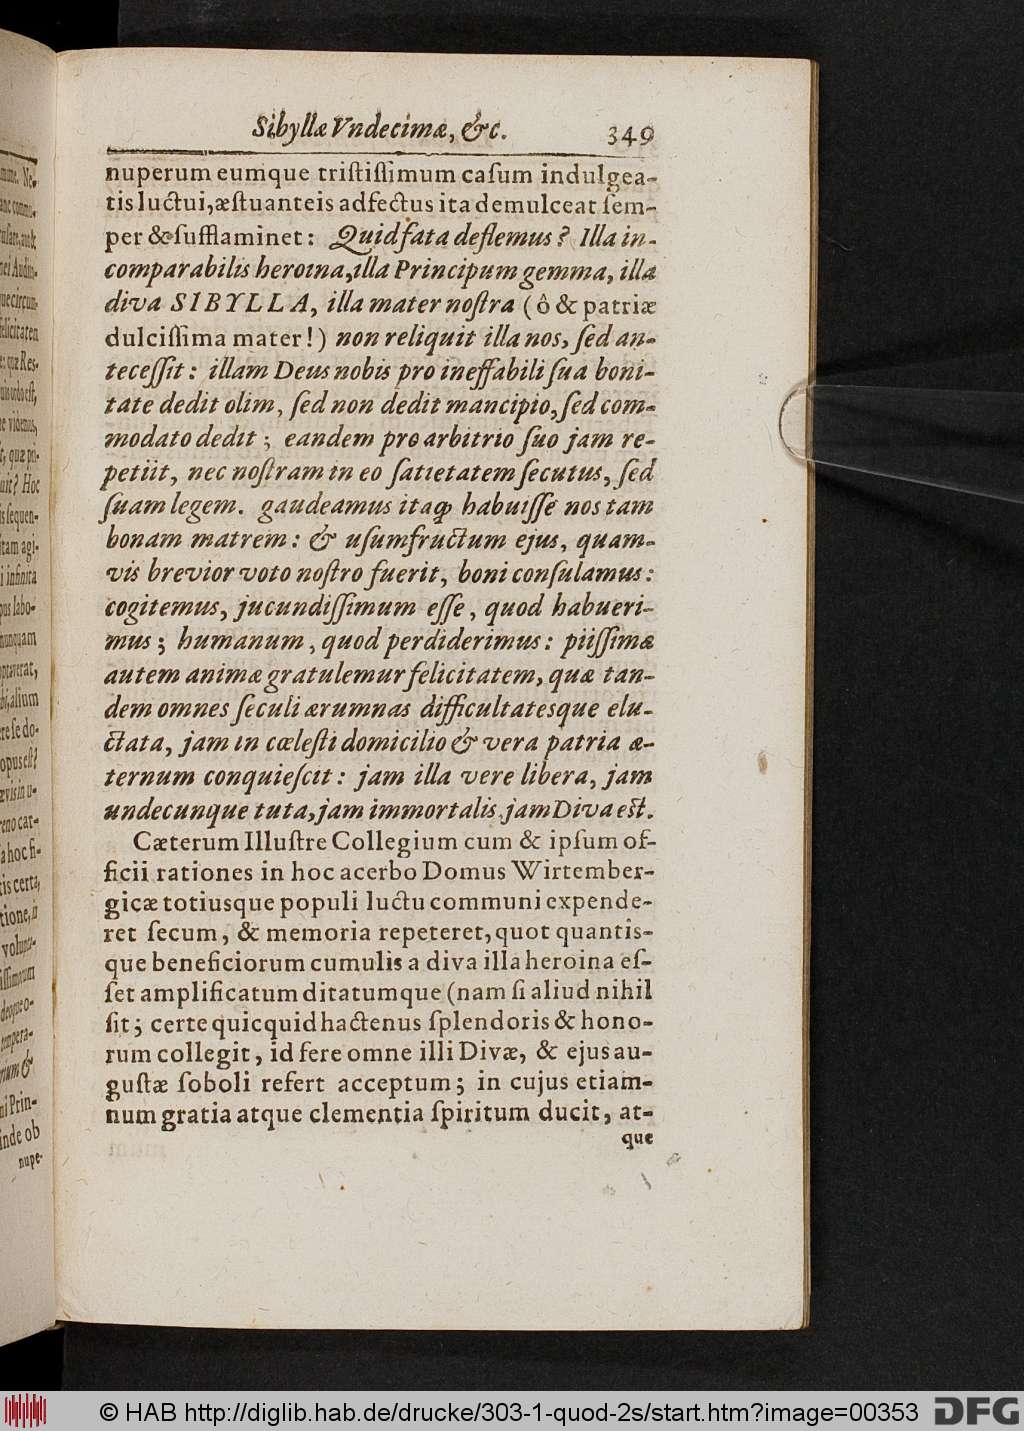 Sibyllæ Vndecimæ, &c. 349
nuperum eumque triſtiſſimum caſum indulgea-
tis luctui, æſtuanteis adfectus ita demulceat ſem-
per & ſufflaminet: Quid fata deflemus? Illa in-
comparabilis heroina, illa Principum gemma, illa
diva SIBYLLA, illa mater noſtra (ô & patriæ
dulciſſima mater!) non reliquit illa nos, ſed an-
teceſſit: illam Deus nobis pro ineffabili ſua boni-
tate dedit olim, ſed non dedit mancipio, ſed com-
modato dedit; eandem pro arbitrio ſuo jam re-
petiit, nec noſtram in eo ſatietatem ſecutus, ſed
ſuam legem. gaudeamus itaq; habuiſſe nos tam
bonam matrem: & uſumfructum ejus, quam-
vis brevior voto noſtro fuerit, boni conſulamus:
cogitemus, jucundiſſimum eſſe, quod habueri-
mus; humanum, quod perdiderimus: piiſſimæ
autem animæ gratulemur felicitatem, quæ tan-
dem omnes ſeculi ærumnas difficultatesque elu-
ctata, jam in cœleſti domicilio & vera patria æ-
ternum conquieſcit: jam illa vere libera, jam
undecunque tuta, jam immortalis, jam Diva eſt.
Cæterum Illuſtre Collegium cum & ipſum of-
ficii rationes in hoc acerbo Domus Wirtember-
gicæ totiusque populi luctu communi expende-
ret ſecum, & memoria repeteret, quot quantis-
que beneficiorum cumulis a diva illa heroina eſ-
ſet amplificatum ditatumque (nam ſi aliud nihil
ſit; certe quicquid hactenus ſplendoris & hono-
rum collegit, id fere omne illi Divæ, & ejus au-
guſtæ ſoboli refert acceptum; in cujus etiam-
num gratia atque clementia ſpiritum ducit, at-
que
© HAB http://diglib.hab.de/drucke/303-1-quod-2s/start.htm?image=00353 DFG